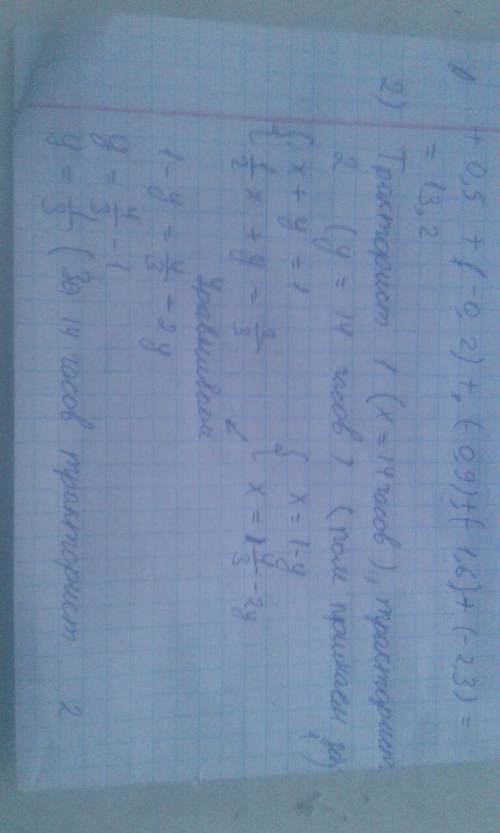 + 0,5 + (-0,2) + (-0,9) + (-1,6) + (-2,3) =
= 13,2
2) Тракторист 1 (x = 14 часов), тракторист
2 (y = 14 часов) (поле примем за 1)
{ x + y = 1 { x = 1-y
{ 1/2 x + y = 2/3 { x = 4/3 - 2y
Уравниваем
1 - y = 4/3 - 2y
y = 4/3 - 1
y = 1/3 (За 14 часов тракторист 2